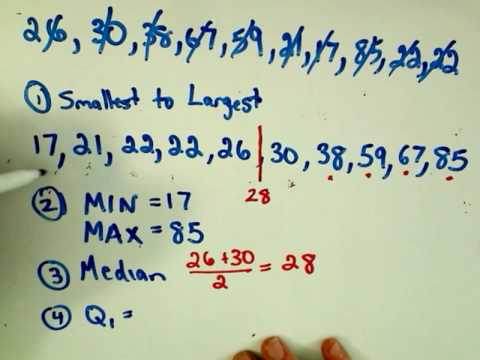 26, 30, 38, 67, 59, 21, 17, 85, 22, 22
① Smallest to Largest
17, 21, 22, 22, 26, 30, 38, 59, 67, 85
28
② MIN = 17
MAX = 85
③ Median 26+30/2 = 28
④ Q₁ =